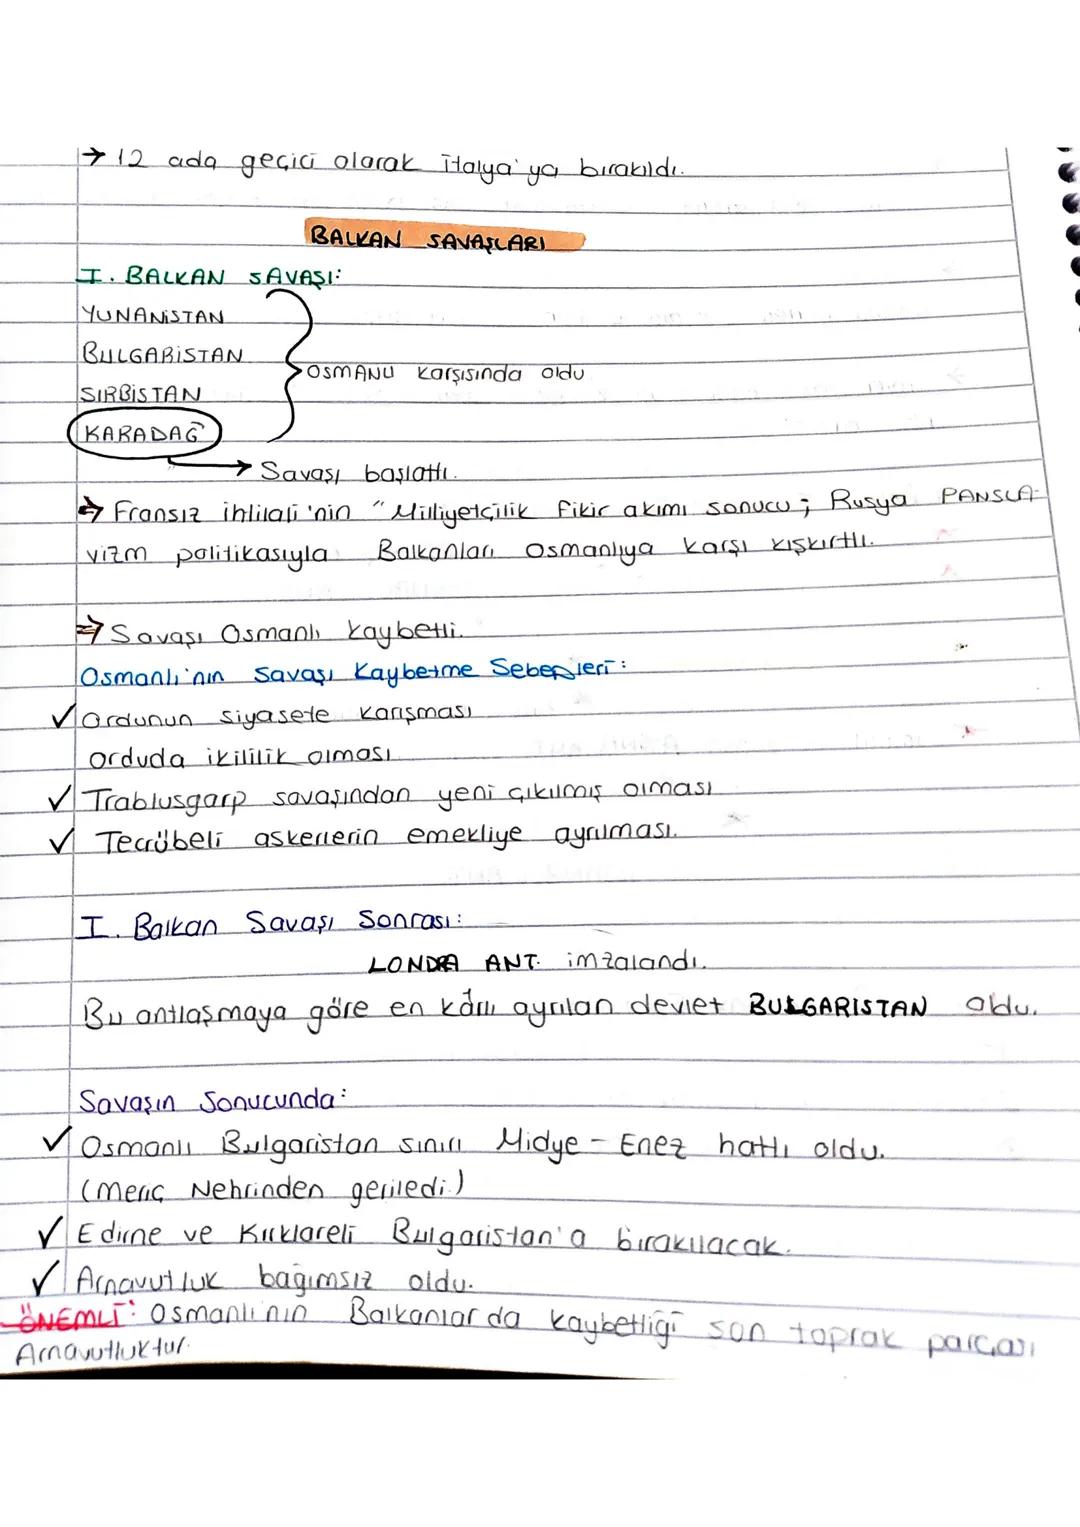 → 12 ada geçici olarak İtalya'ya bırakıldı.
BALKAN SAVAŞLARI
I. BALKAN SAVAŞI:
YUNANİSTAN
BULGARİSTAN
OSMANLI karşısında oldu
SIRBİSTAN
KARADAĞ
→ Savaşı başlattı.
⇒ Fransız ihlilali'nin "Milliyetçilik fikir akımı sonucu; Rusya PANSLA-
vizm politikasıyla Balkanları Osmanlıya karşı kışkırttı.
⇒ Savaşı Osmanlı kaybetti.
Osmanlı'nın Savaşı Kaybetme Sebepleri:
✓ Ordunun siyasete karışması
orduda ikililik olması
✓ Trablusgarp savaşından yeni çıkılmış olması
✓ Tecrübeli askerlerin emekliye ayrılması.
I. Balkan Savaşı Sonrası:
LONDRA ANT. imzalandı.
Bu antlaşmaya göre en kârlı ayrılan devlet BULGARISTAN oldu.
Savaşın Sonucunda:
✓ Osmanlı Bulgaristan sınırı Midye - Enez hattı oldu.
(Meriç Nehrinden geriledi.)
✓ Edirne ve Kırklareli Bulgaristan'a bırakılacak.
✓ Arnavutluk bağımsız oldu.
ÖNEMLİ: Osmanlı'nın Balkanlar da kaybettiği son toprak parçası
Arnavutluktur.